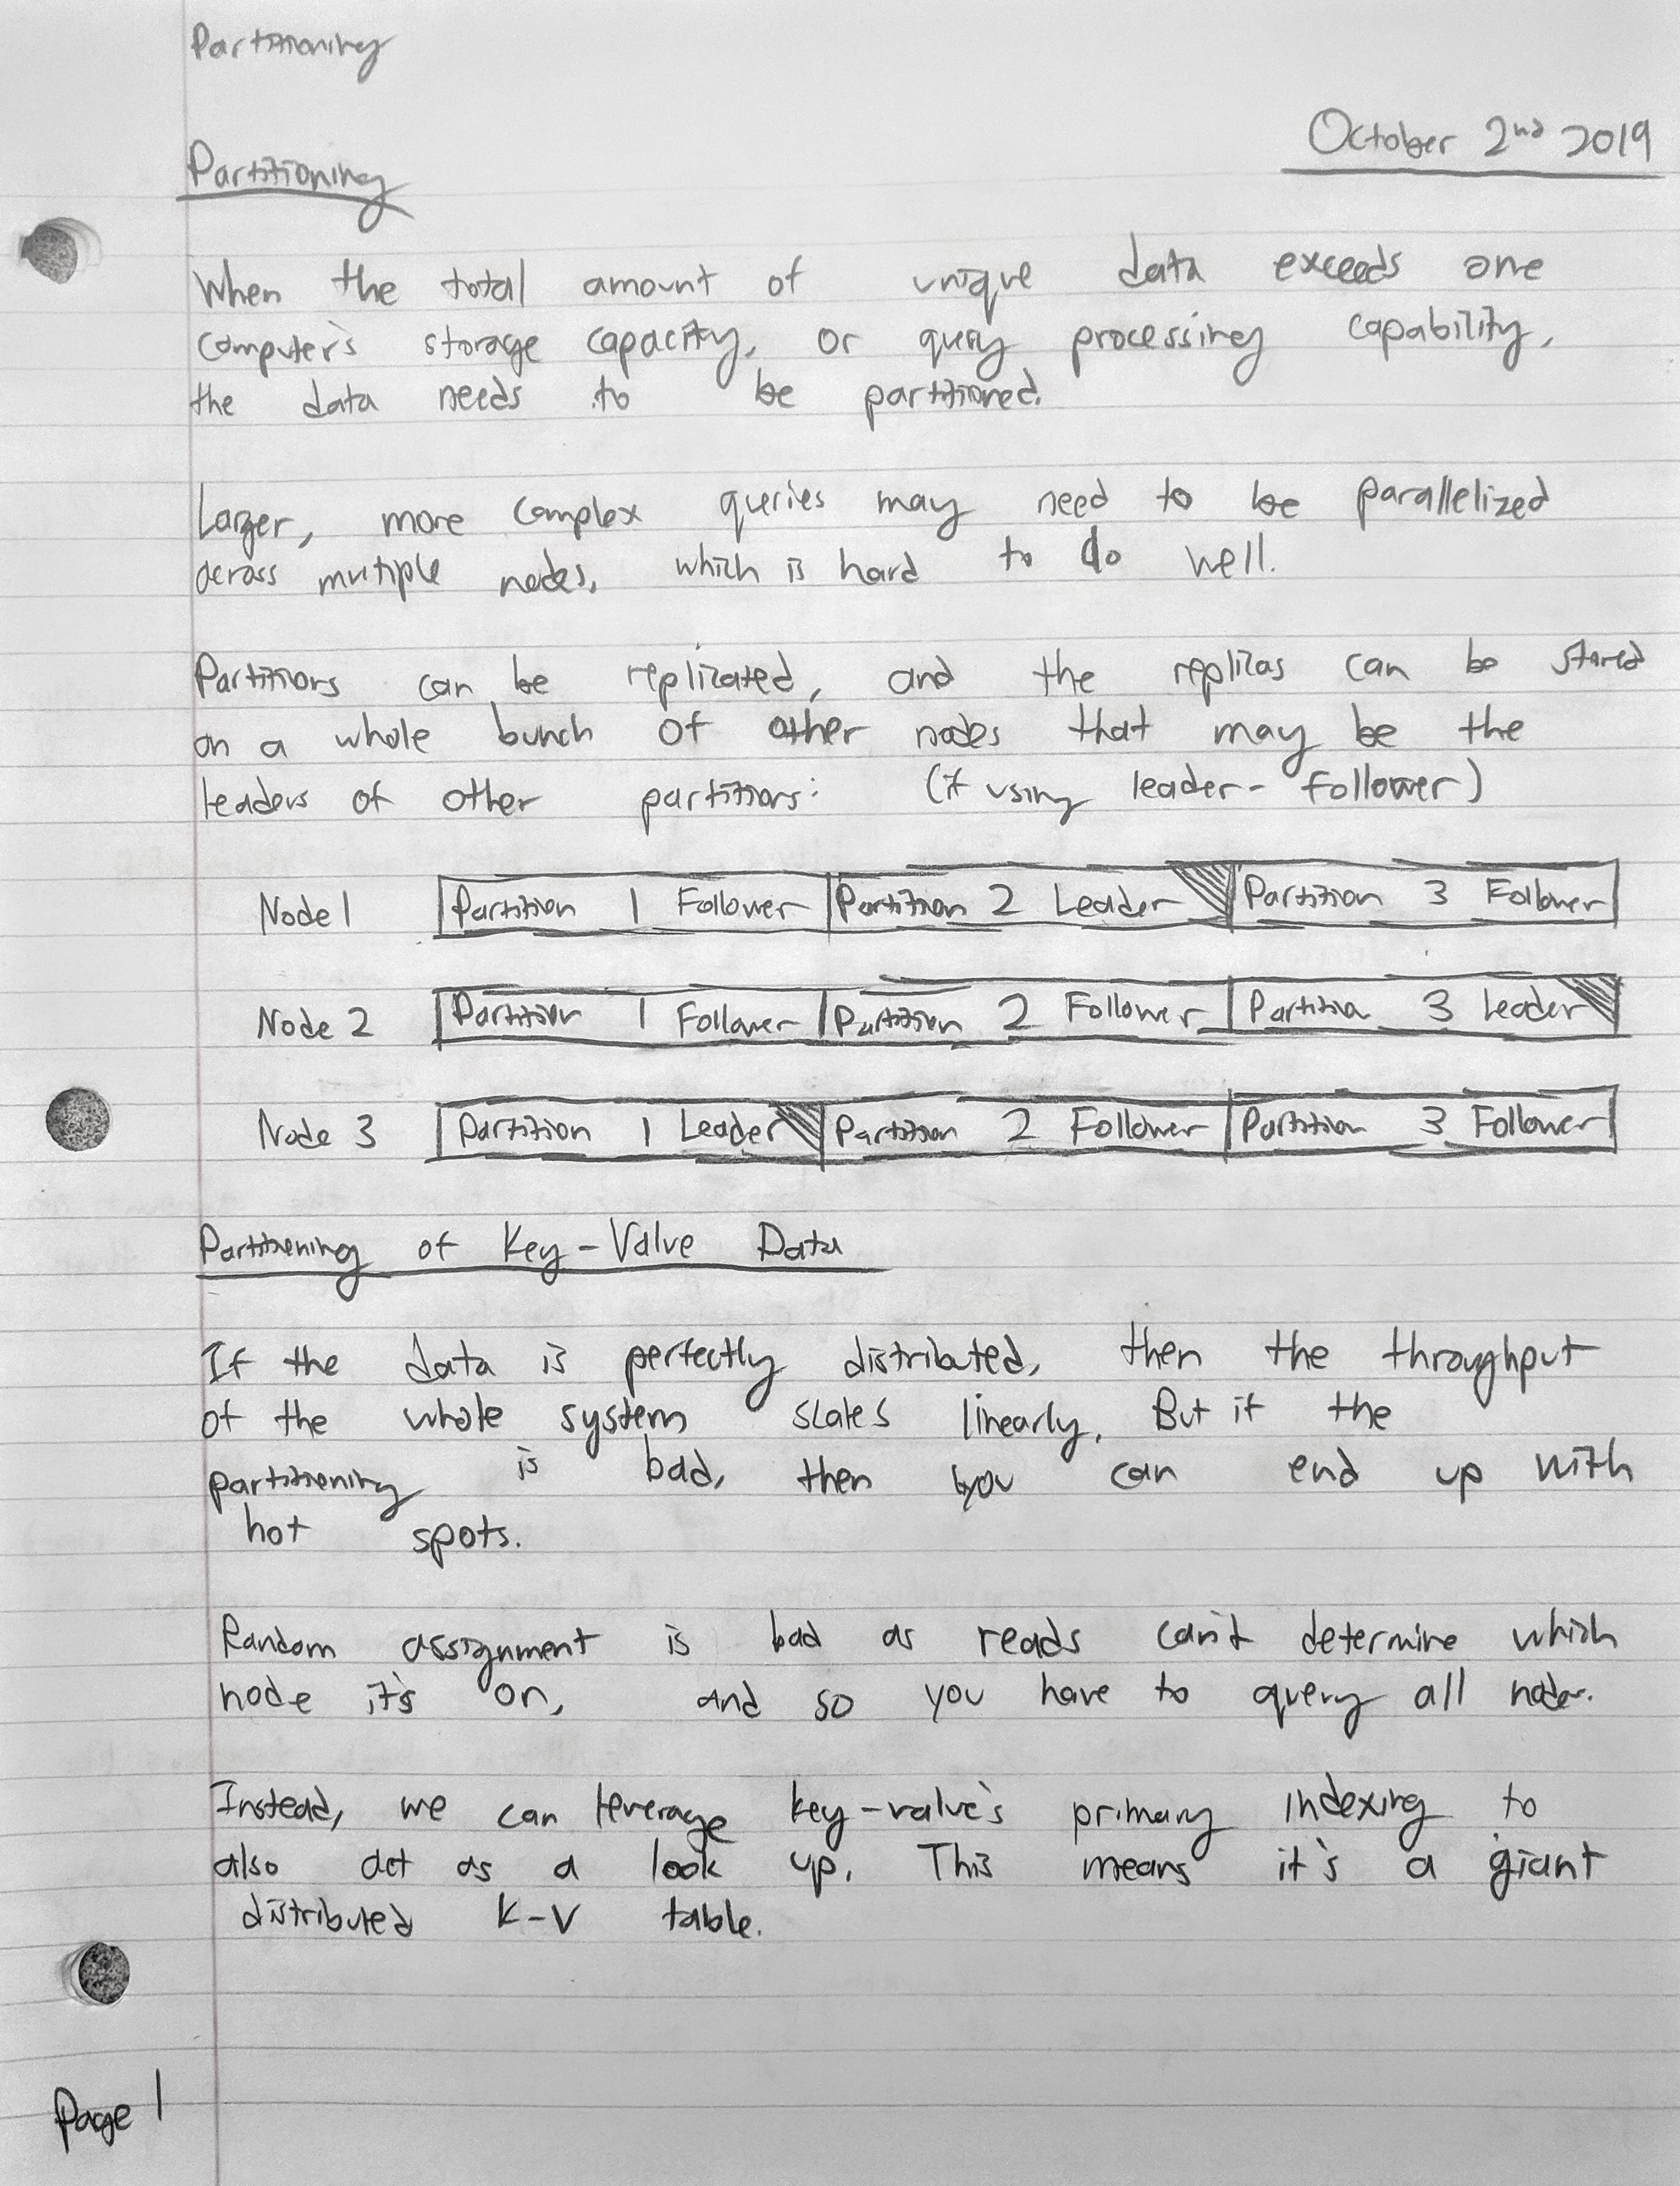 Partitioning
October 2nd 2019
Partitioning
When the total amount of unique data exceeds one
computer's storage capacity, or query processing capability,
the data needs to be partitioned.
Larger, more complex queries may need to be parallelized
across mutiple nodes, which is hard to do well.
Partitions can be replicated, and the replicas can be stored
on a whole bunch of other nodes that may be the
leaders of other partitions: (if using leader-follower)
Node 1 Partition 1 Follower Partition 2 Leader Partition 3 Follower
Node 2 Partition 1 Follower Partition 2 Follower Partition 3 Leader
Node 3 Partition 1 Leader Partition 2 Follower Partition 3 Follower
Partitioning of Key-Value Data
If the data is perfectly distributed, then the throughput
of the whole system scales linearly. But if the
partitioning is bad, then you can end up with
hot spots.
Random assignment is bad as reads can't determine which
node it's on, and so you have to query all nodes.
Instead, we can leverage key-value's primary indexing to
also act as a look up. This means it's a giant
distributed K-V table.
Page 1